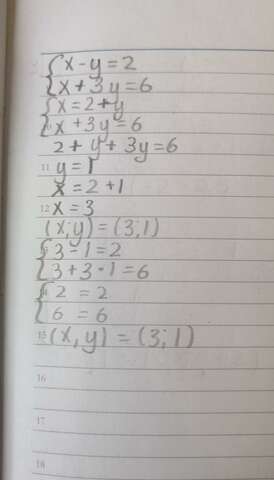 {x-y=2
{x+3y=6
{x=2+y
x+3y=6
2+y+3y=6
11 y=1
x=2+1
12 x=3
(x;y)=(3;1)
{3-1=2
{3+3·1=6
{2=2
6=6
15 (x,y)=(3;1)
16
17
18